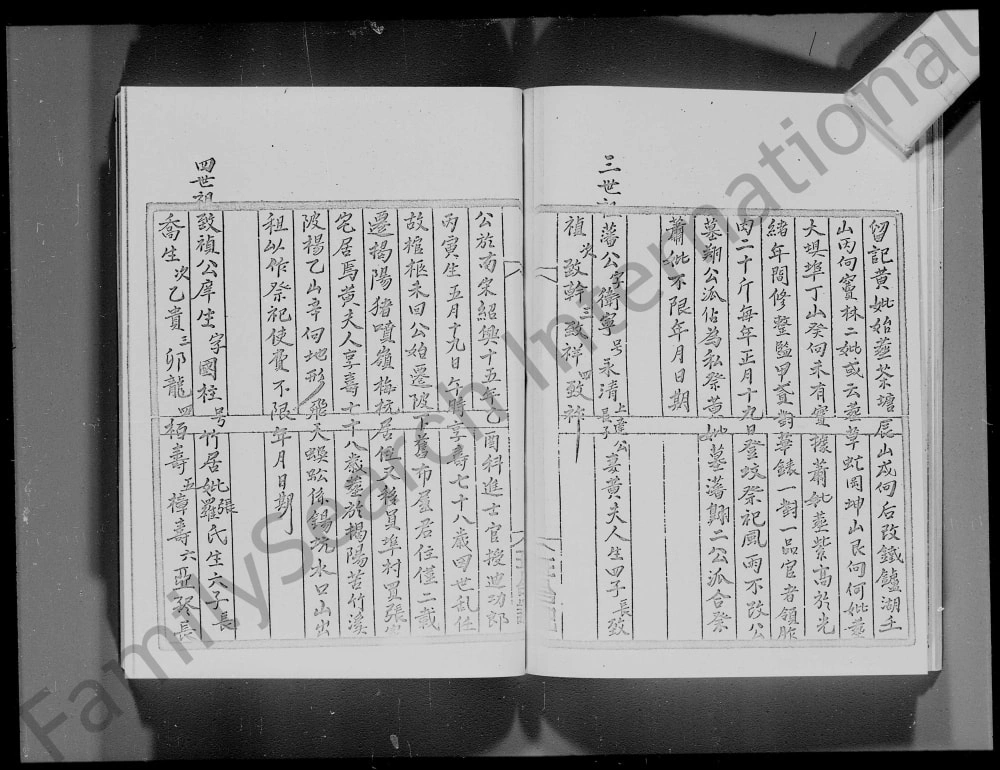 留記黃妣始葬茶塘辰山戍向后改鐵鑪湖壬
山丙向竇林二妣或云葬草虻岡坤山艮向何妣葬
大埧埠丁山癸向未有實據蕭妣葬紫高於光
緒年間修整監甲貲對華錶一對一品官者領胙
肉二十斤每年正月十九日登坟祭祀風雨不改公
墓翔公派佔為私祭黃妣墓藩翔二公派合祭
蕭妣不限年月日期
三世
藩公字衛寧號永清上達公長子妻黃夫人生四子長致
禎次致幹三致祥四致祚
公於南宋紹興十五年乙酉科進士官授迪功郎
丙寅生五月十九日午時享壽七十八歲因世乱任
故棺柩未回公始遷陂下舊布屋君住僅二載
遷揭陽猪嘖嶺梅杬居住又移員埠村買張
宅居焉黃夫人享壽七十八歲葬於揭陽苦竹溪
陂楊乙山辛向地形飛天蜈蚣係錫光水口山出
租以作祭祀使費不限年月日期
四世祖
致禎公庠生字國柱號竹居妣張羅氏生六子長
喬生次乙貴三卯龍四栢壽五樟壽六亞琴長
FamilySearch International